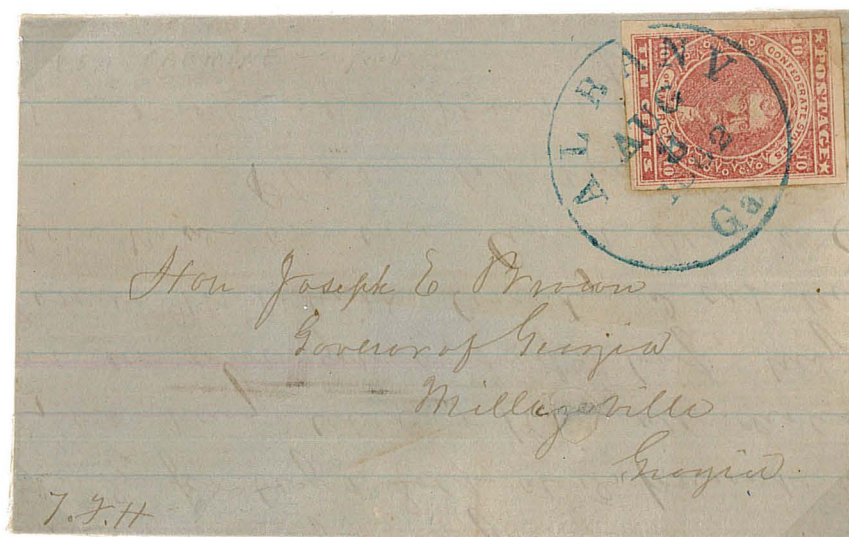 ALBANY
AUG
1862
Ga
10 POSTAGE 10
CONFEDERATE STATES
TEN CENTS
Hon Joseph E Brown
Goveror of Georgia
Milledgeville
Georgia.
T.F.H